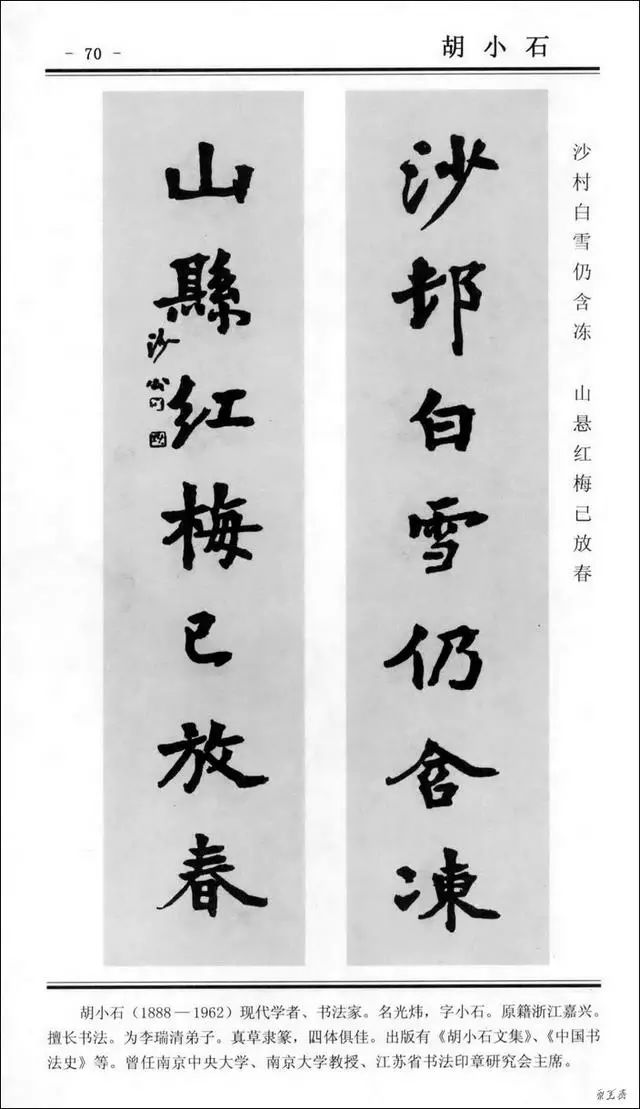 - 70 -
胡小石
沙邨白雪仍含凍
山縣紅梅已放春
沙公
沙村白雪仍含冻 山悬红梅已放春
胡小石（1888—1962）现代学者、书法家。名光炜，字小石。原籍浙江嘉兴。
擅长书法。为李瑞清弟子。真草隶篆，四体俱佳。出版有《胡小石文集》、《中国书
法史》等。曾任南京中央大学、南京大学教授、江苏省书法印章研究会主席。